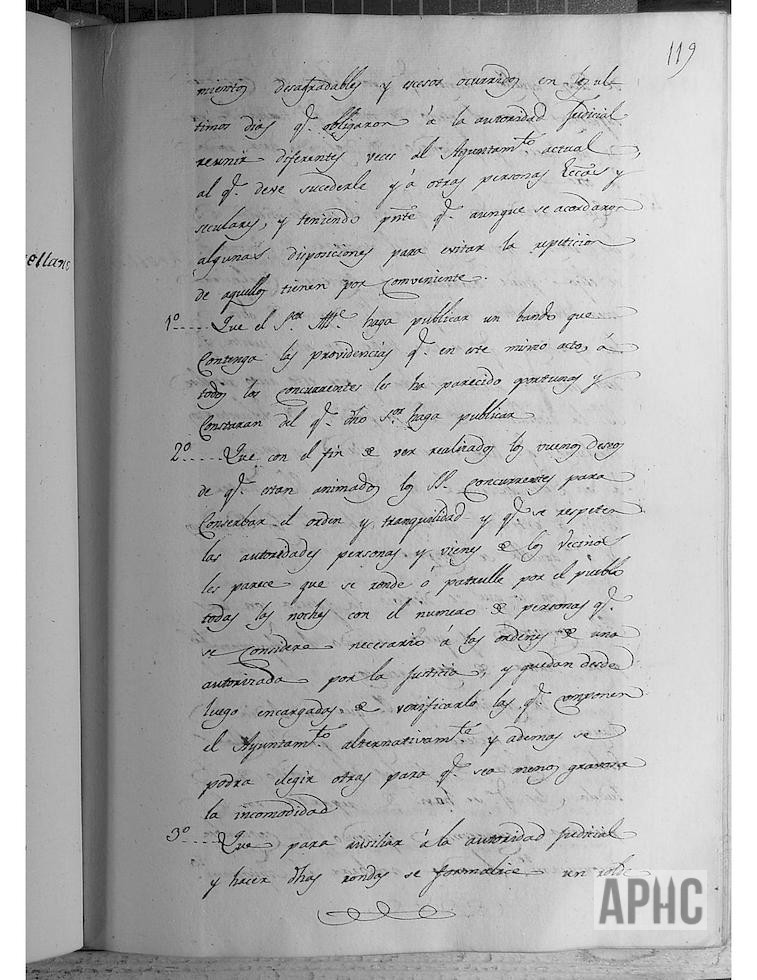 119
mientos desagradables y excesos ocurridos en los ul
timos dias qe. obligaron á la autoridad Judicial
reunir diferentes veces al Ayuntamto. actual,
al qe. deve sucederle y á otras personas Eccas. y
seculares, y teniendo pnte qe. aunque se acordaron
algunas disposiciones para evitar la repeticion
de aquellos tienen por Conveniente.
1º.... Que el Sor. Alle. haga publicar un bando que
Contenga las providencias qe. en este mismo acto, á
todos los concurrentes les ha parecido oportunas y
Constaran del qe. dho Sor. haga publicar
2º.... Que con el fin de ver realizados los vuenos deseos
de qe. estan animados los SS. Concurrentes para
Conserbar el orden y tranquilidad y qe. se respeten
las autoridades personas y vienes de los Vecinos
les parece que se ronde ó patrulle por el pueblo
todas las noches con el numero de personas qe.
se Considere necesario á las ordenes de una
autorizada por la Justicia, y quedan desde
luego encargadas de verificarlo las qe. componen
el Ayuntamto. alternativamte. y ademas se
podra elegir otras para qe. sea menos gravosa
la incomodidad
3º.... Que para ausiliar á la autoridad Judicial
y hacer dhas rondas se formalice un rolde
ellano
APHC